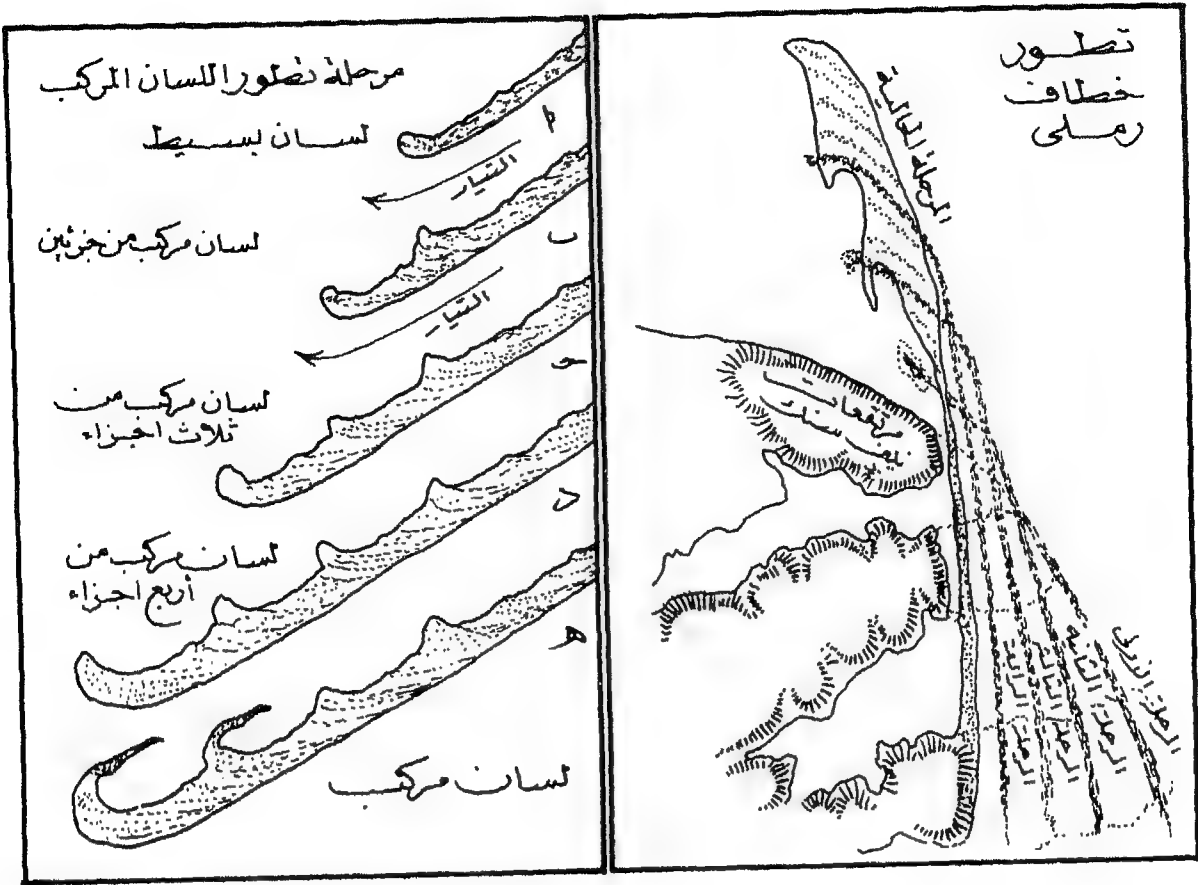 تطور
خطاف
رملى
المرحلة الحالية
مرتفعات
المرحلة الاولى
المرحلة الثانية
المرحلة الثالثة
المرحلة الرابعة
مرحلة تطور اللسان المركب
لسان بسيط
أ
التيار
لسان مركب من جزئين
ب
التيار
لسان مركب من
ثلاث اجزاء
حـ
لسان مركب من
أربع اجزاء
د
هـ
لسان مركب